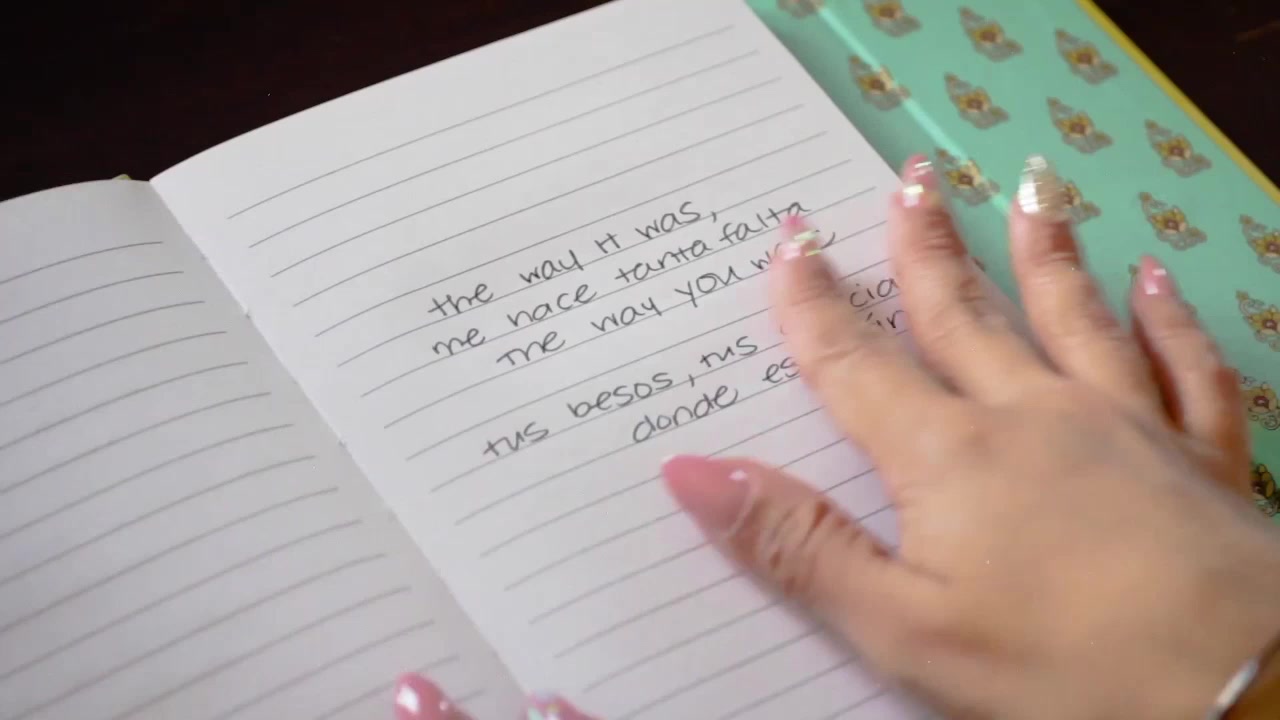 the way it was,
me hace tanta falta
the way you
tus besos, tus
donde